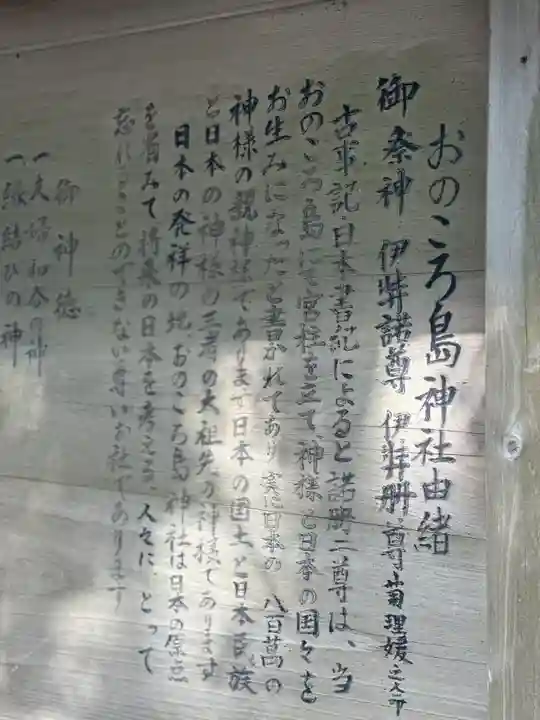 おのころ島神社由緒
御祭神 伊弉諾尊 伊弉冊尊 菊理媛之命
古事記・日本書記によると諾冊二尊は、当
おのころ島にて宮柱を立て、神様と日本の国々を
お生みになったと書かれてあり実に日本の 八百萬の
神様の親神様であります日本の国土と日本民族
と日本の神様の三者の大祖先の神様であります
日本の発祥の地、おのころ島神社は日本の原点
を省みて将来の日本を考える、人々に、とって
忘れることのできない尊いお社であります
御神徳
一夫婦和合の神
一縁結びの神